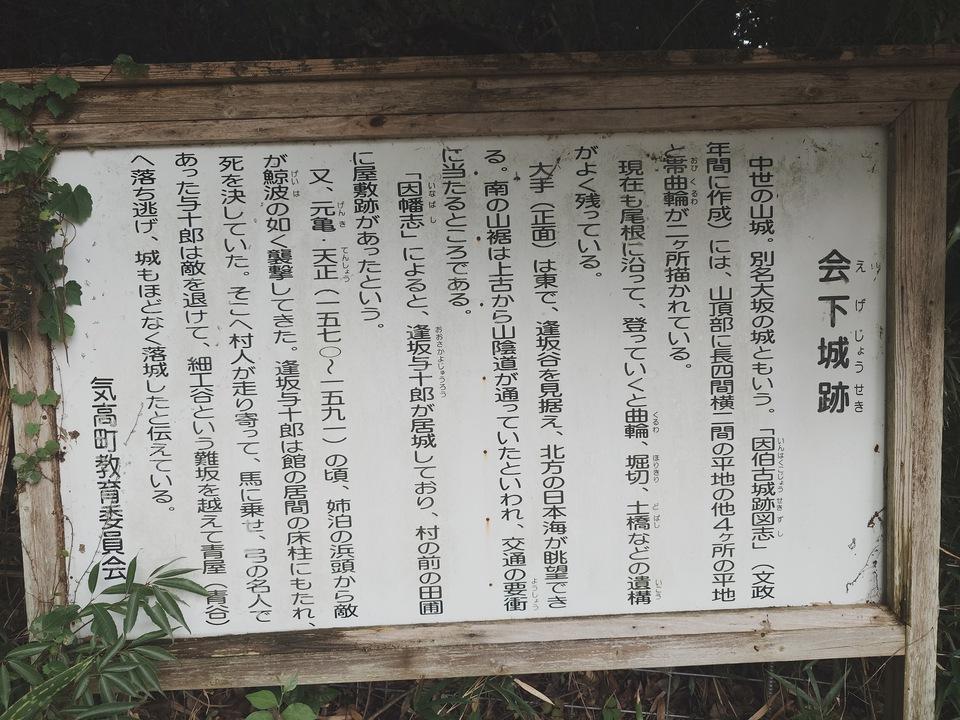 会下城跡
中世の山城。別名大坂の城ともいう。「因伯古城跡図志」（文政
年間に作成）には、山頂部に長四間横二間の平地の他4ヶ所の平地
と帯曲輪が二ヶ所描かれている。
現在も尾根に沿って、登っていくと曲輪、堀切、土橋などの遺構
がよく残っている。
大手（正面）は東で、逢坂谷を見据え、北方の日本海が眺望でき
る。南の山裾は上古から山陰道が通っていたといわれ、交通の要衝
に当たるところである。
「因幡志」によると、逢坂与十郎が居城しており、村の前の田圃
に屋敷跡があったという。
又、元亀・天正（一五七〇～一五九一）の頃、姉泊の浜頭から敵
が鯨波の如く襲撃してきた。逢坂与十郎は館の居間の床柱にもたれ、
死を決していた。そこへ村人が走り寄って、馬に乗せ、弓の名人で
あった与十郎は敵を退けて、細工谷という難坂を越えて青屋（青谷）
へ落ち逃げ、城もほどなく落城したと伝えている。
気高町教育委員会